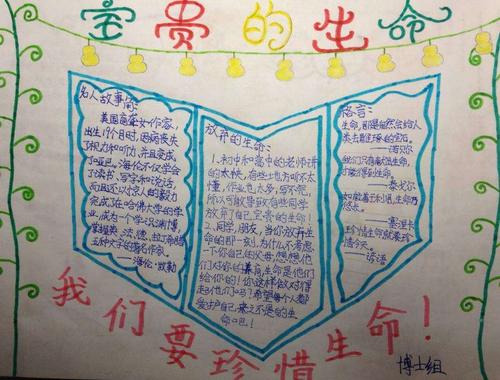 宝贵的生命
名人故事简:
美国盲聋女作家,
出生19个月时,因病丧失
了视力和听力,并且变成
了哑巴。海伦不仅学会
了读书、写字和说话,
而且还以惊人的毅力
完成了在哈佛大学的学
业,成为一个学识渊博,
掌握英、法、德、拉丁、希腊
五种文字的著名作家。
——海伦·凯勒
放弃的生命:
1、初中和高中的老师讲
的太快,有些地方听不太
懂,作业也太多,写不完,
所以可能导致有些同学
放弃了自己宝贵的生命!
2、同学,朋友,当你放弃生
命的那一刻,为什么不考虑
下你自己的父母,想想他
们对你的养育,生命是他们
给你的!你这样做对得
起他们吗?希望每个人都
爱护自己,来之不易的生
命吧!
格言:
生命,那是自然会给人
类去雕琢的宝石。
——诺贝尔
我们只有献出生命,
才能得到生命。
——泰戈尔
——塞涅卡
珍惜生命就要珍
惜今天。
——谚语
我们要珍惜生命!
博士组